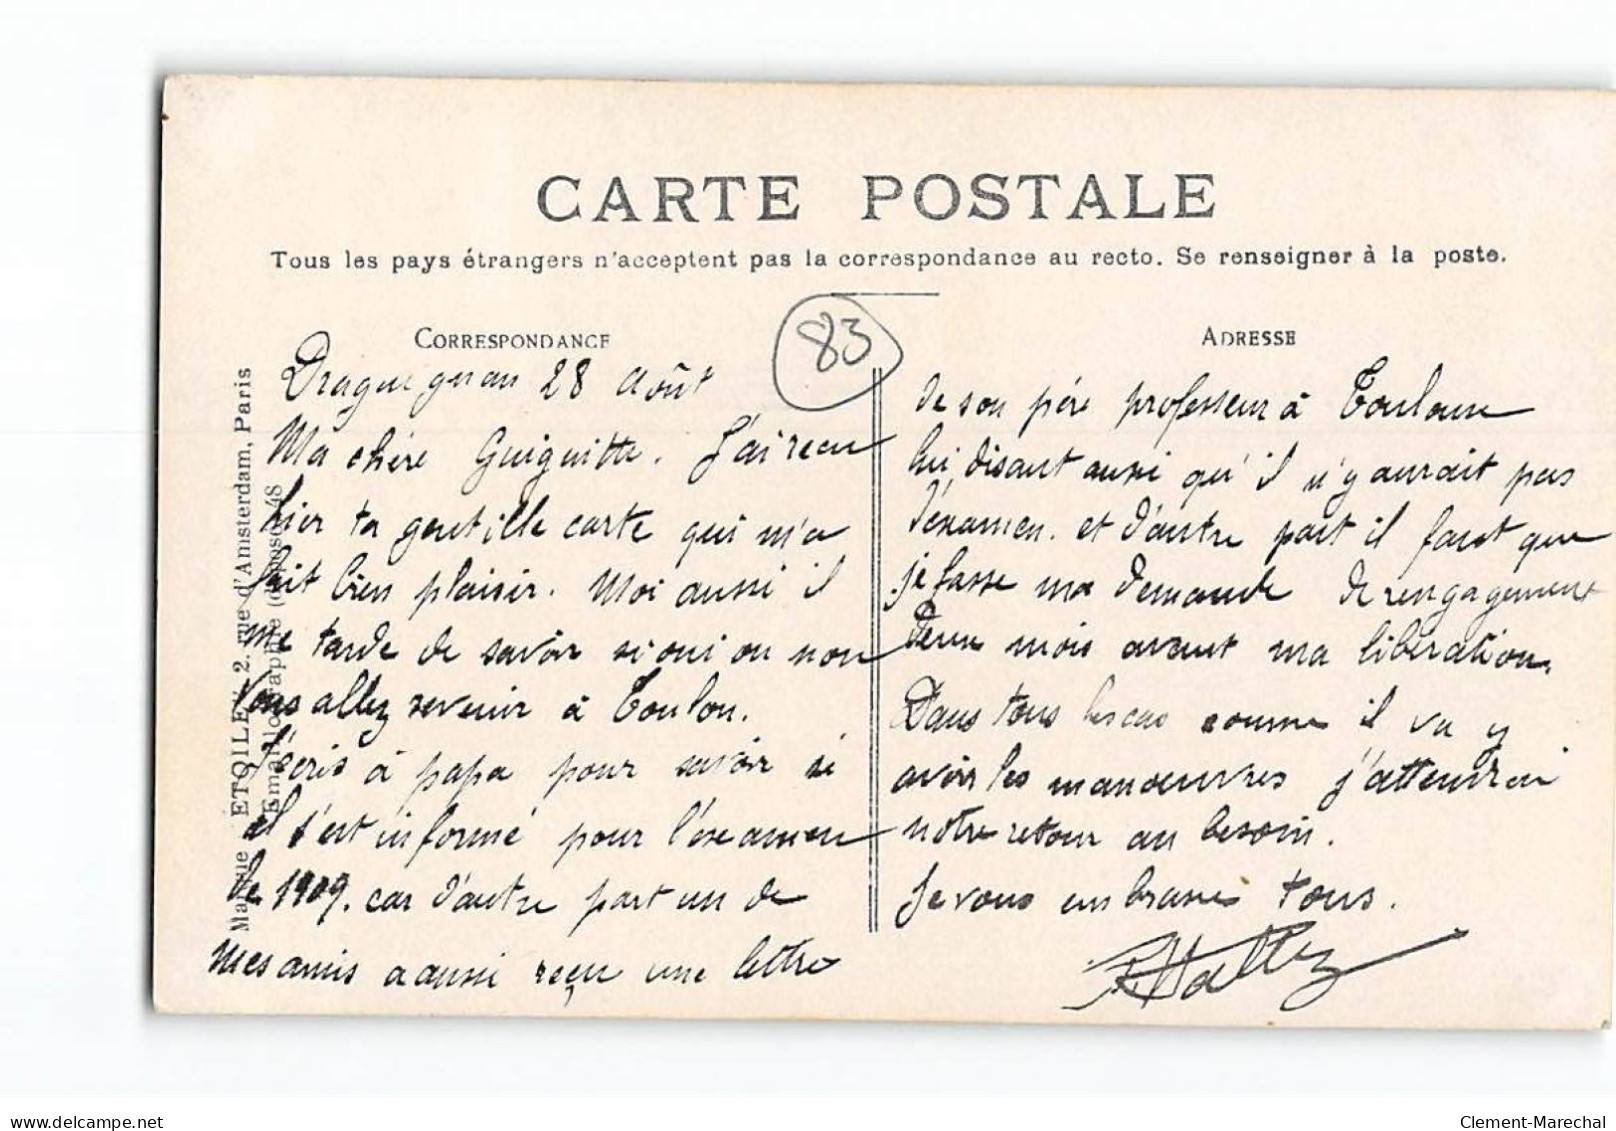 CARTE POSTALE
Tous les pays étrangers n'acceptent pas la correspondance au recto. Se renseigner à la poste.
CORRESPONDANCE
83
ADRESSE
Marque ETOILE, 2, rue d'Amsterdam, Paris
Draguignan 28 Août
Ma chère Guiguitte. J'ai reçu
hier ta gentille carte qui m'a
fait bien plaisir. Moi aussi il
me tarde de savoir si oui ou non
vous allez revenir à Toulon.
J'écris à papa pour savoir si
il s'est informé pour l'examen
de 1909. car d'autre part un de
mes amis a aussi reçu une lettre
de son père professeur à Toulouse
lui disant aussi qu'il n'y aurait pas
d'examen. et d'autre part il faut que
je fasse ma demande de rengagement
deux mois avant ma libération.
Dans tous les cas comme il va y
avoir les manoeuvres j'attendrai
notre retour au besoin.
Je vous embrasse tous.
delcampe.net
Clement-Marechal